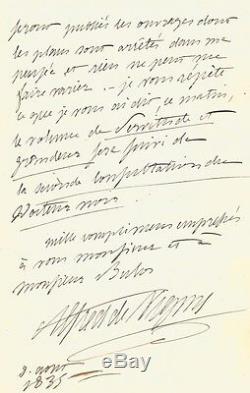 seront publiés les ouvrages dont
les plans sont arrêtés dans ma
pensée et rien ne peut me
faire varier... je vous répète
ce que je vous ai dit, ce matin,
le volume de Servitude et
grandeur sera suivi de
la seconde consultation du
Docteur noir.
mille complimens empressés
à vous monsieur et à
monsieur Buloz
Alfred de Vigny
8. août
1835
withCOA.com